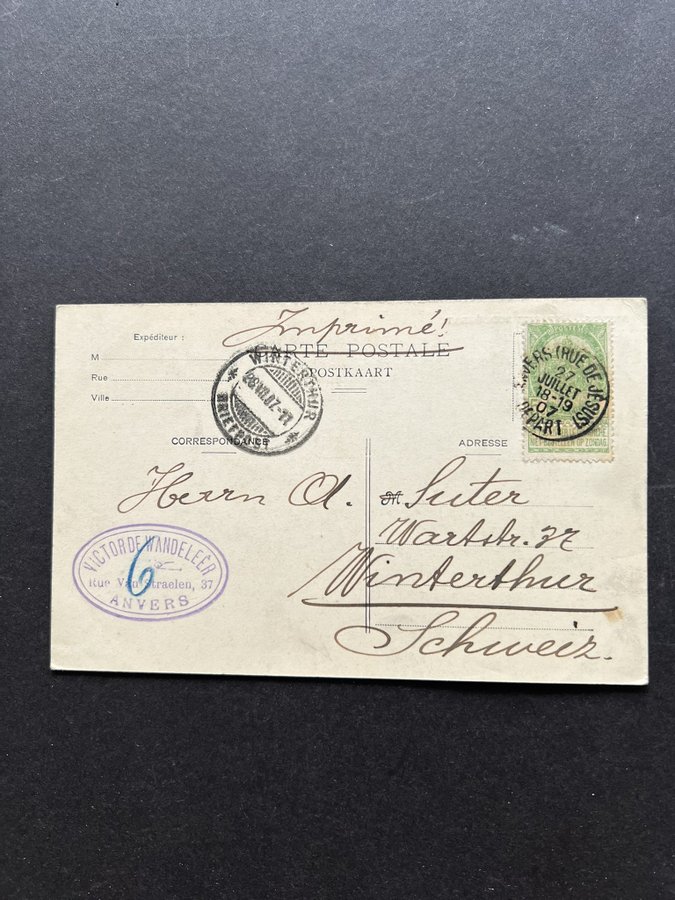 Imprimé!
Expéditeur :
CARTE POSTALE
POSTKAART
M
Rue
Ville
WINTERTHUR
28.VII.07-11
BRIEFPOST
ANVERS (RUE DE JÉSUS)
27
JUILLET
18-19
07
DEPART
NIET BESTELLEN OP ZONDAG
CORRESPONDANCE
ADRESSE
Herrn A. Suter
M
Wartstr. 37
Winterthur
Schweiz.
VICTOR DE WANDELEER
6
Rue Van Straelen, 37
ANVERS